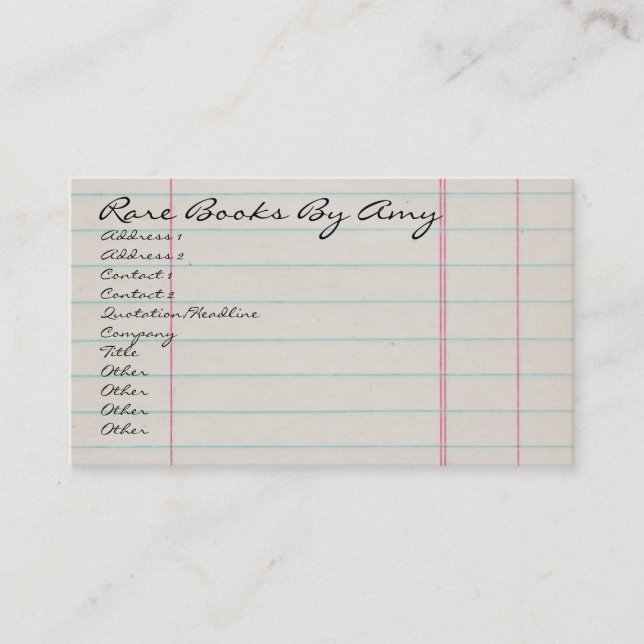 Rare Books By Amy
Address 1
Address 2
Contact 1
Contact 2
Quotation/Headline
Company
Title
Other
Other
Other
Other